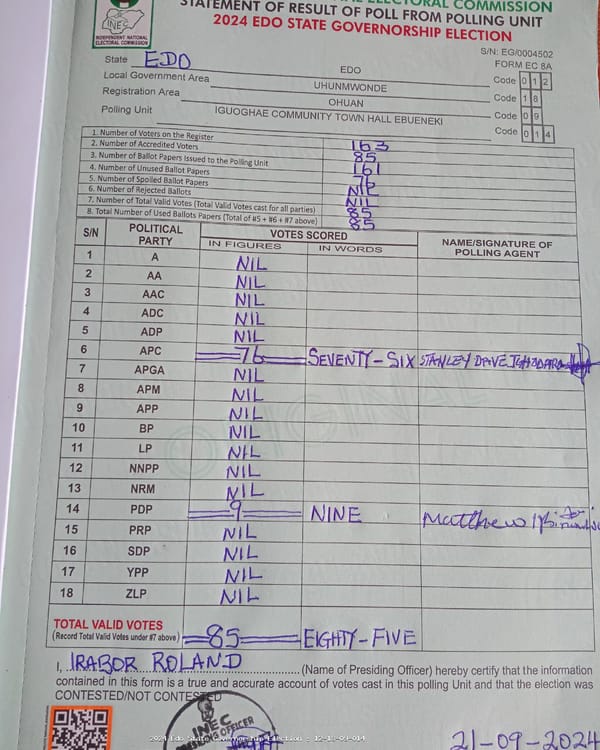 ELECTORAL COMMISSION
STATEMENT OF RESULT OF POLL FROM POLLING UNIT
2024 EDO STATE GOVERNORSHIP ELECTION
INEC
INDEPENDENT NATIONAL
ELECTORAL COMMISSION
S/N: EG/0004502
FORM EC 8A
State EDO EDO Code 0 1 2
Local Government Area UHUNMWONDE Code 1 8
Registration Area OHUAN Code 0 9
Polling Unit IGUOGHAE COMMUNITY TOWN HALL EBUENEKI Code 0 1 4
1. Number of Voters on the Register 163
2. Number of Accredited Voters 85
3. Number of Ballot Papers Issued to the Polling Unit 161
4. Number of Unused Ballot Papers 76
5. Number of Spoiled Ballot Papers NIL
6. Number of Rejected Ballots NIL
7. Number of Total Valid Votes (Total Valid Votes cast for all parties) 85
8. Total Number of Used Ballots Papers (Total of #5 + #6 + #7 above) 85
S/N POLITICAL PARTY VOTES SCORED NAME/SIGNATURE OF POLLING AGENT
IN FIGURES IN WORDS
1 A NIL
2 AA NIL
3 AAC NIL
4 ADC NIL
5 ADP NIL
6 APC 76 SEVENTY-SIX STANLEY DAVE
7 APGA NIL
8 APM NIL
9 APP NIL
10 BP NIL
11 LP NIL
12 NNPP NIL
13 NRM NIL
14 PDP 9 NINE Matthew
15 PRP NIL
16 SDP NIL
17 YPP NIL
18 ZLP NIL
ORIGINAL
TOTAL VALID VOTES
(Record Total Valid Votes under #7 above) 85 EIGHTY-FIVE
I, IRABOR ROLAND (Name of Presiding Officer) hereby certify that the information
contained in this form is a true and accurate account of votes cast in this polling Unit and that the election was
CONTESTED/NOT CONTESTED
INEC
PRESIDING OFFICER
2024 Edo State Governorship Election : 12-18-09-014
21-09-2024